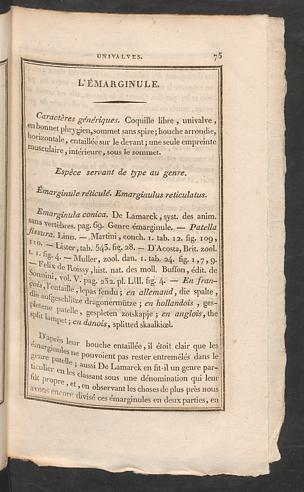 UNIVALVES. 75
L'ÉMARGINULE.
Caractères génériques. Coquille libre, univalve,
en bonnet phrygien, sommet sans spire; bouche arrondie,
horizontale, entaillée sur le devant; une seule empreinte
musculaire, intérieure, sous le sommet.
Espèce servant de type au genre.
Émarginule réticulé. Emarginulus reticulatus.
Emarginula conica. De Lamarck, syst. des anim.
sans vertèbres. pag. 69. Genre émarginule. — Patella
fissura. Linn. — Martini, conch. 1. tab. 12. fig. 109,
110. — Lister, tab. 543. fig. 28. — D'Acosta, Brit. zool.
t. 1. fig. 4. — Muller, zool. dan. 1. tab. 24. fig. 1, 7, 9.
— Felix de Roissy, hist. nat. des moll. Buffon, édit. de
Sonnini, vol. V. pag. 232. pl. LIII. fig. 4. — En fran-
çois, l'entaille, lepas fendu; en allemand, die spalte,
die aufgeschlitze dragonermütze; en hollandois, ges-
pletene patelle, gespleten zotskapje; en anglois, the
split lampet; en danois, splitted skaalkiœl.
D'après leur bouche entaillée, il étoit clair que les
émarginules ne pouvoient pas rester entremêlés dans le
genre patelle; aussi De Lamarck en fit-il un genre par-
ticulier en les classant sous une dénomination qui leur
fût propre, et, en observant les choses de plus près nous
avons encore divisé ces émarginules en deux parties, en